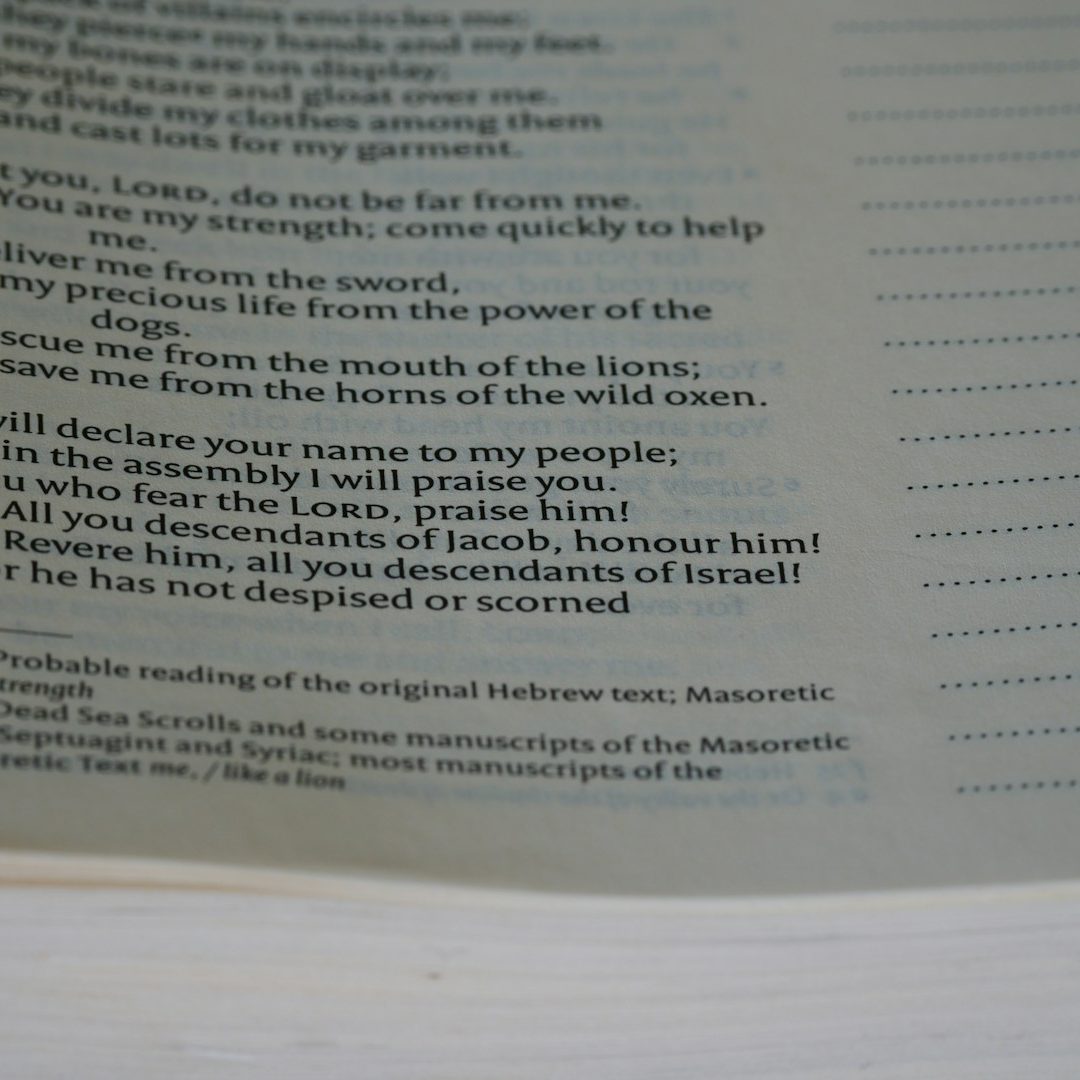 of villains encircles me;
they pierce my hands and my feet.
my bones are on display;
people stare and gloat over me.
ey divide my clothes among them
and cast lots for my garment.
t you, LORD, do not be far from me.
You are my strength; come quickly to help
me.
liver me from the sword,
my precious life from the power of the
dogs.
scue me from the mouth of the lions;
save me from the horns of the wild oxen.
will declare your name to my people;
in the assembly I will praise you.
u who fear the LORD, praise him!
All you descendants of Jacob, honour him!
Revere him, all you descendants of Israel!
r he has not despised or scorned
Probable reading of the original Hebrew text; Masoretic
trength
Dead Sea Scrolls and some manuscripts of the Masoretic
Septuagint and Syriac; most manuscripts of the
retic Text me, / like a lion